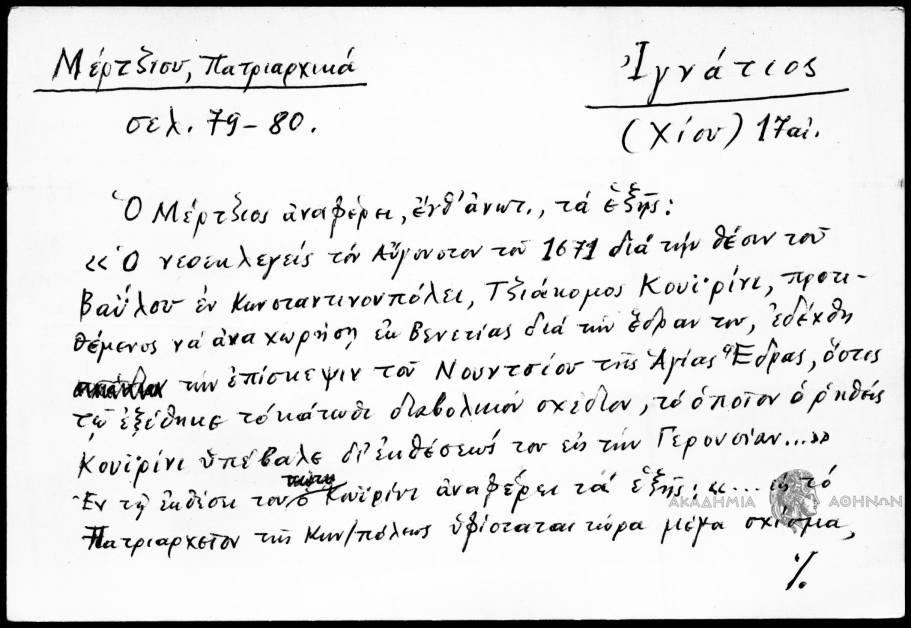 Μέρτζιου, Πατριαρχικά
σελ. 79-80.
Ἰγνάτιος
(Χίου) 17 αἰ.
Ὁ Μέρτζιος ἀναφέρει, ἔνθ' ἀνωτ., τά ἑξῆς:
«Ὁ νεοεκλεγείς τόν Αὔγουστον τοῦ 1671 διά τήν θέσιν τοῦ
Βαΐλου ἐν Κωνσταντινουπόλει, Τζιάκομος Κουϊρίνι, προτι-
θέμενος νά ἀναχωρήσῃ ἐκ Βενετίας διά τήν ἕδραν του, ἐδέχθη
τήν ἐπίσκεψιν τοῦ Νουντσίου τῆς Ἁγίας Ἕδρας, ὅστις
τῷ ἐξέθηκε τό κάτωθι διαβολικόν σχέδιον, τό ὁποῖον ὁ ρηθείς
Κουϊρίνι ὑπέβαλε δι' ἐκθέσεώς του εἰς τήν Γερουσίαν...»
Ἐν τῇ ἐκθέσει του ὁ Κουϊρίνι ἀναφέρει τά ἑξῆς: «... εἰς τό
Πατριαρχεῖον τῆς Κων/πόλεως ὑφίσταται τώρα μέγα σχίσμα,
./.
ΑΚΑΔΗΜΙΑ ΑΘΗΝΩΝ